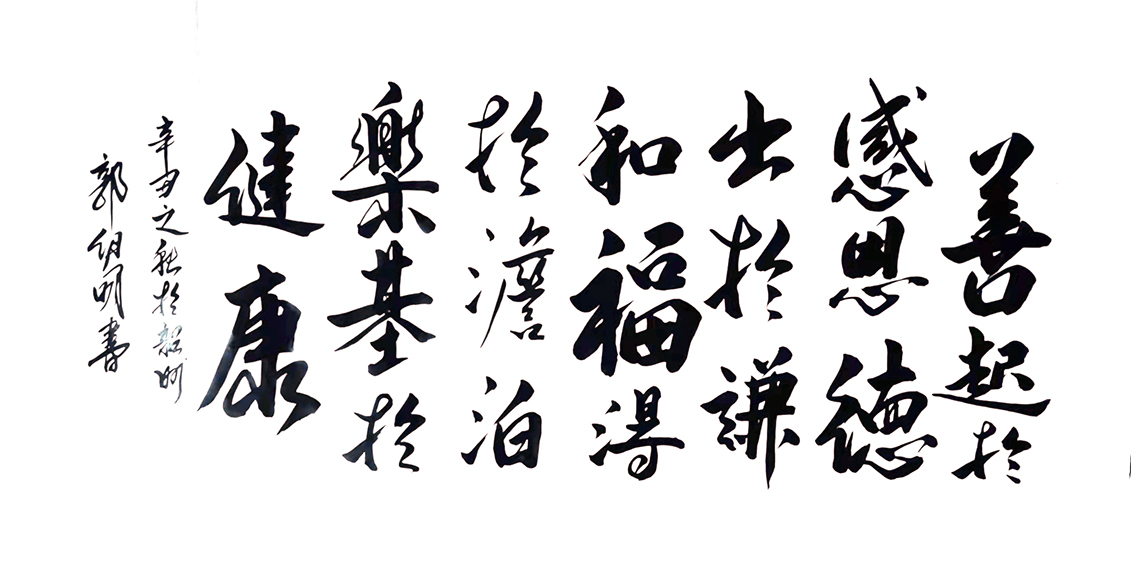 善起於
感恩德
出於謙
和福得
於澹泊
樂基於
健康
辛丑之秋於韶州
郭明書